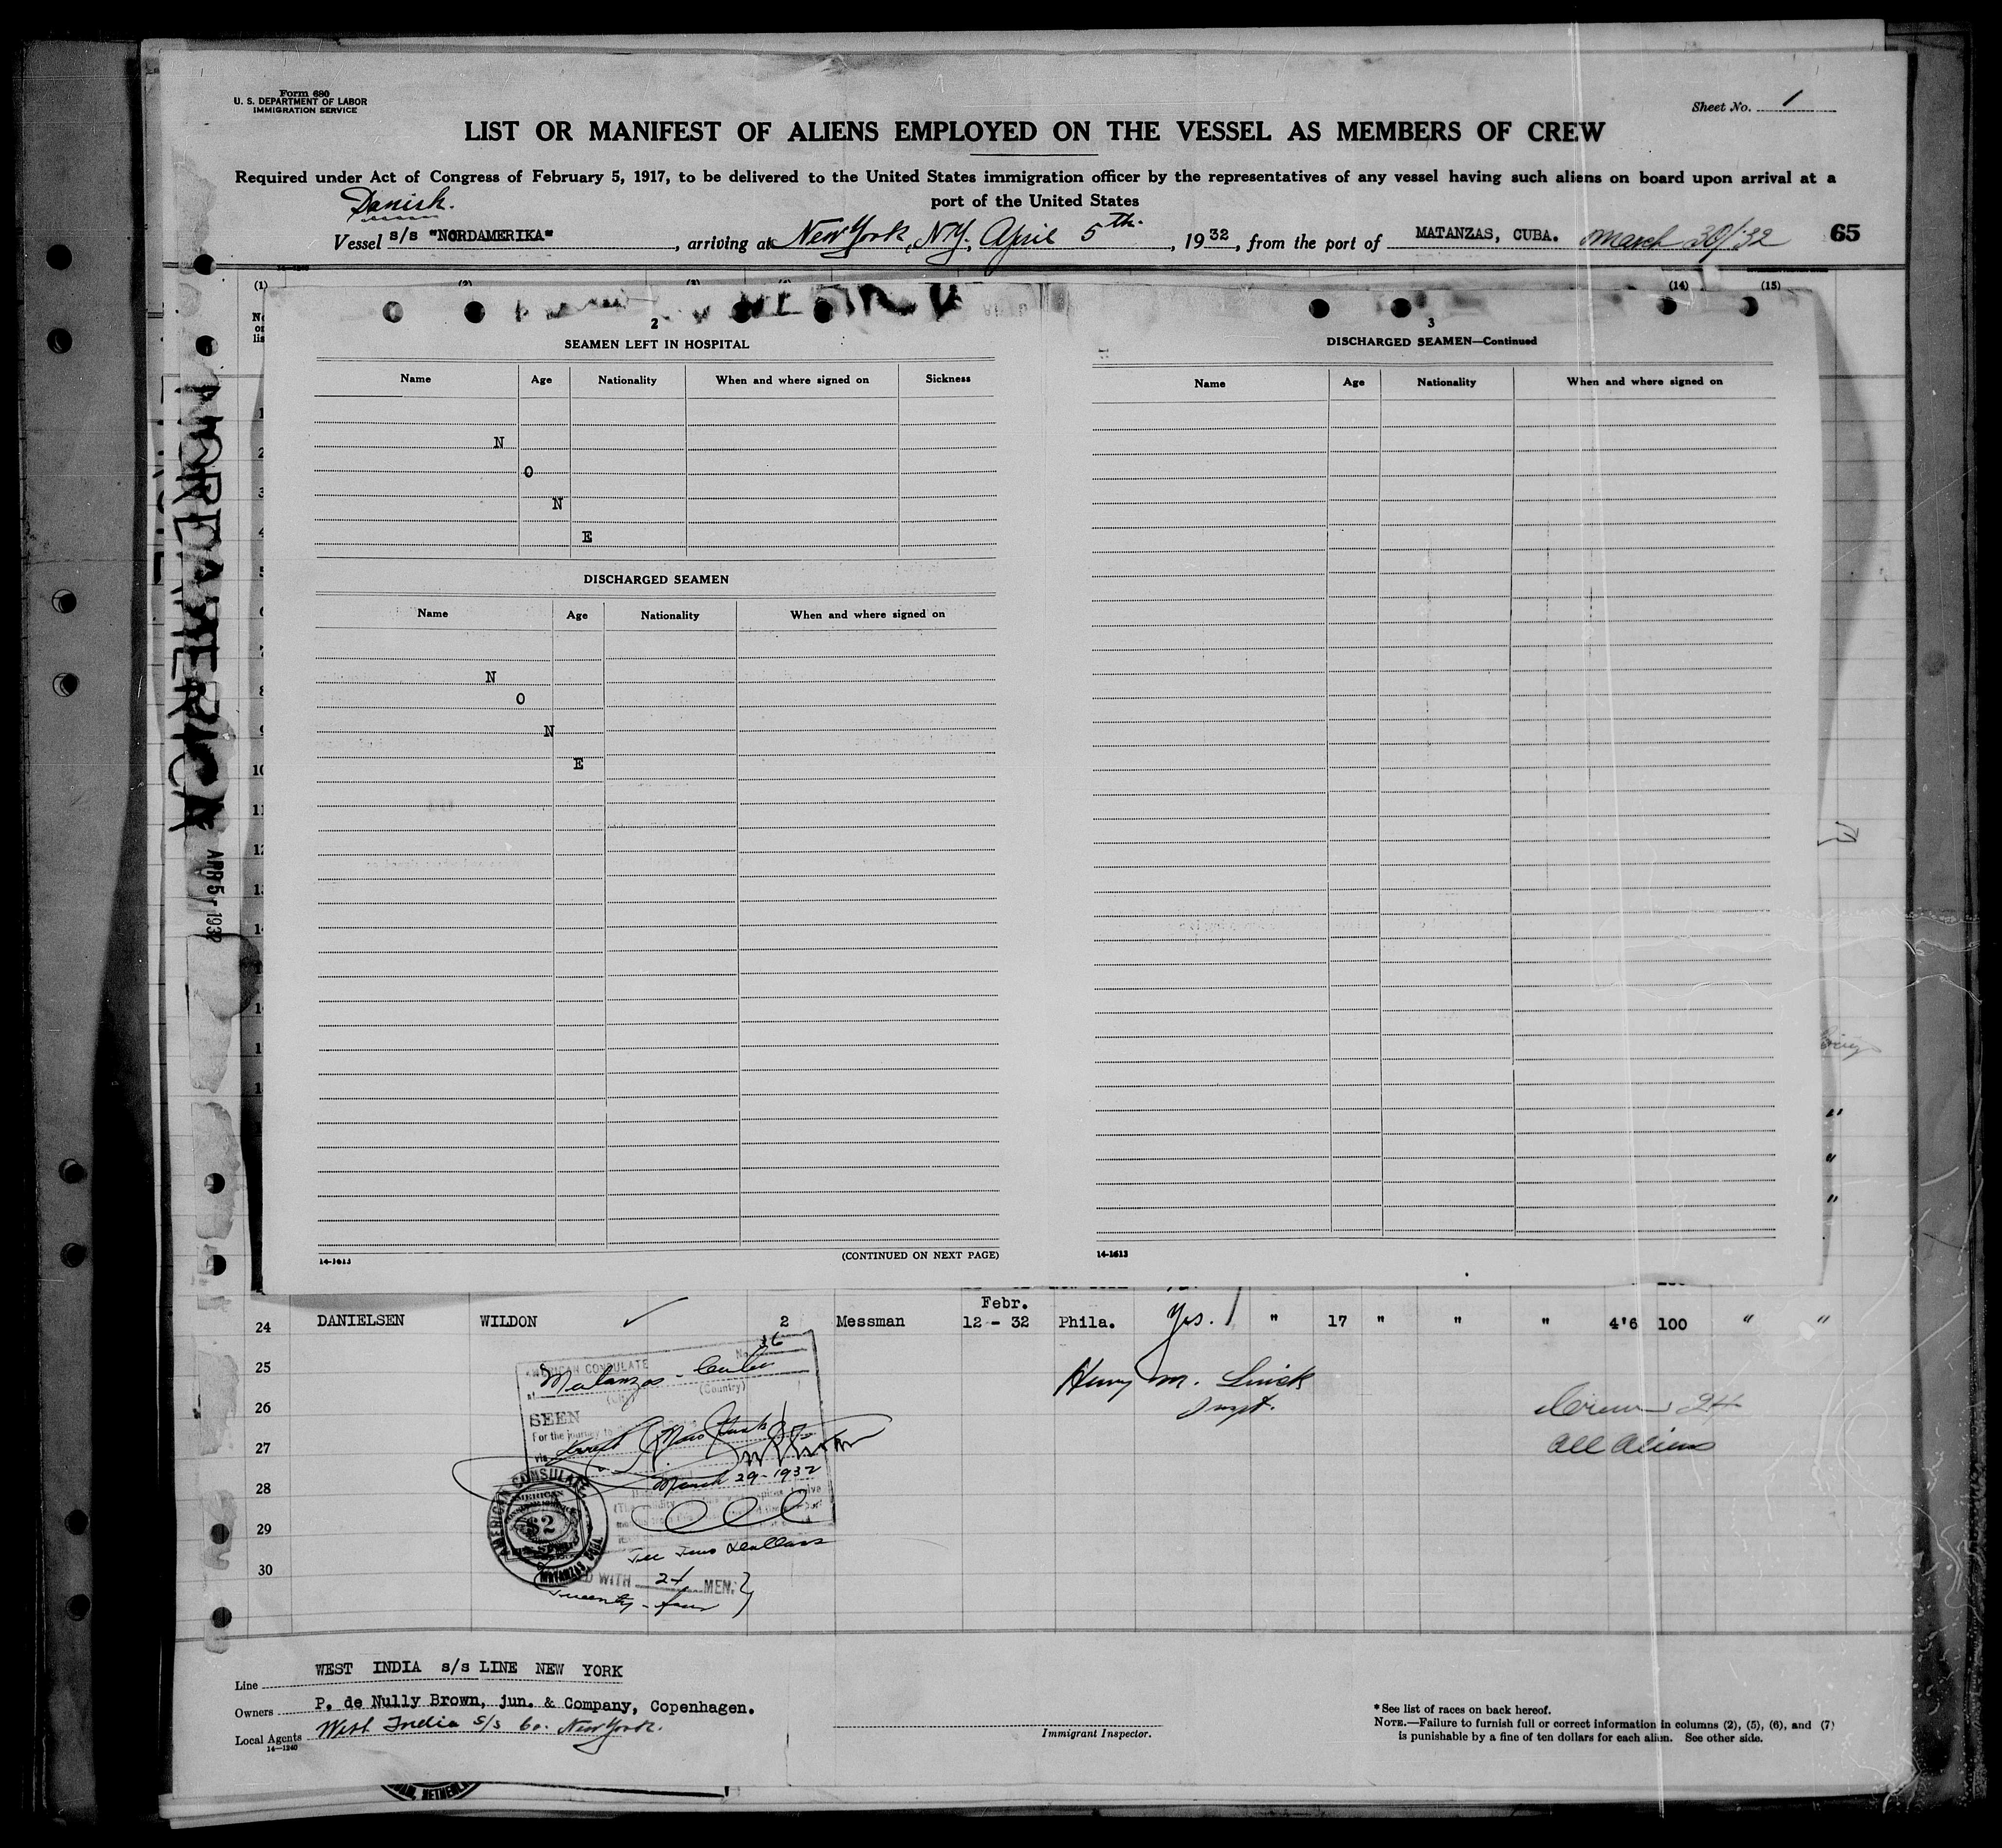 Form 680
U. S. DEPARTMENT OF LABOR
IMMIGRATION SERVICE
Sheet No. 1
LIST OR MANIFEST OF ALIENS EMPLOYED ON THE VESSEL AS MEMBERS OF CREW
Required under Act of Congress of February 5, 1917, to be delivered to the United States immigration officer by the representatives of any vessel having such aliens on board upon arrival at a
port of the United States
Danish.
Vessel s/s "NORDAMERIKA", arriving at New York, N.Y., April 5th. , 1932, from the port of MATANZAS, CUBA. March 30/-32 65
(1) (14) (15)
2
SEAMEN LEFT IN HOSPITAL
Name Age Nationality When and where signed on Sickness
N
O
N
E
DISCHARGED SEAMEN
Name Age Nationality When and where signed on
N
O
N
E
14-1613 (CONTINUED ON NEXT PAGE)
3
DISCHARGED SEAMEN—Continued
Name Age Nationality When and where signed on
14-1613
APR 5 - 1932
24 DANIELSEN WILDON ✓ 2 Messman Febr. 12 - 32 Phila. Yes. " 17 " " " 4'6 100 " "
25
26
27
28
29
30
Henry M.
Inspt.
Crew 24
All Aliens
AMERICAN CONSULATE No. 36
at Matanzas - Cuba
(City) (Country)
SEEN
For the journey to
via
March 29-1932
AMERICAN CONSULATE
AMERICAN
$2
Fee Two Dollars
WITH 24 MEN.
Twenty-four
Line WEST INDIA s/s LINE NEW YORK
Owners P. de Nully Brown, jun. & Company, Copenhagen.
Local Agents West India S/s Co. New York.
14-1240
Immigrant Inspector.
* See list of races on back hereof.
NOTE.—Failure to furnish full or correct information in columns (2), (5), (6), and (7)
is punishable by a fine of ten dollars for each alien. See other side.